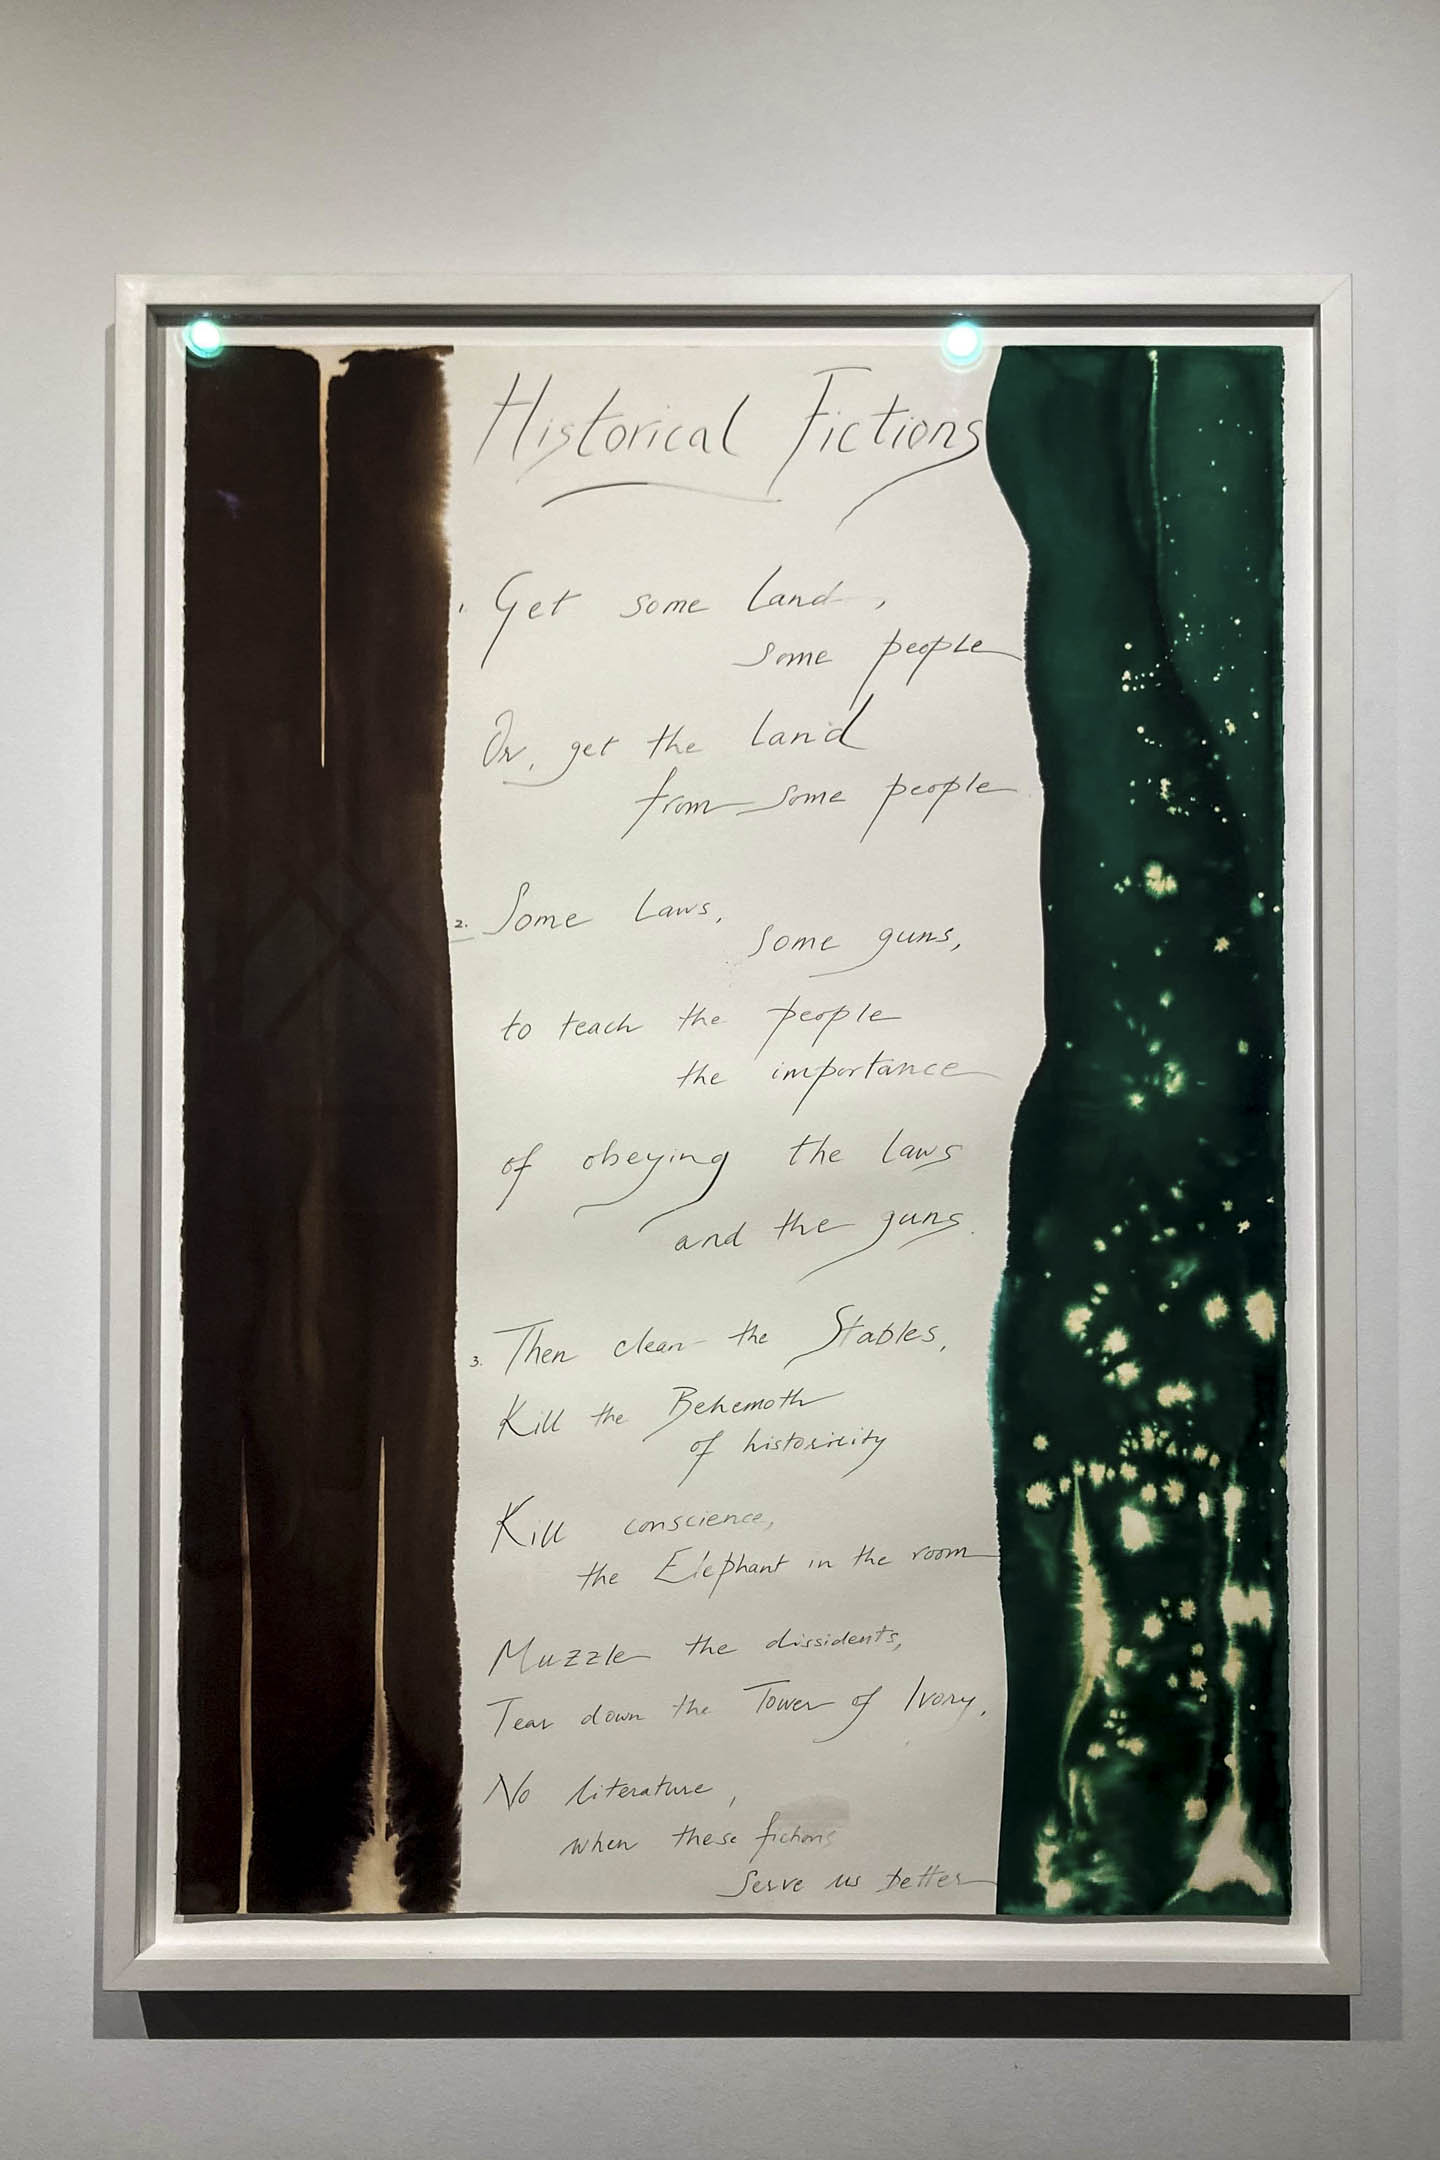 Historical Fictions
1. Get some land,
some people
Or, get the land
from some people
2. Some laws,
some guns,
to teach the people
the importance
of obeying the laws
and the guns.
3. Then clean the Stables,
Kill the Behemoth
of historicity
Kill conscience,
the Elephant in the room
Muzzle the dissidents,
Tear down the Tower of Ivory,
No literature,
when these fictions
serve us better